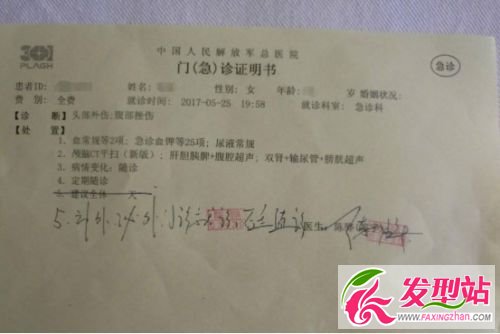 301
PLAGH
中国人民解放军总医院
门(急)诊证明书
急诊
患者ID: 姓名: 性别: 女 年龄: 岁 婚姻状况:
费 别: 全费 就诊时间: 2017-05-25 19:58 就诊科室: 急诊科
【诊 断】头部外伤;腹部挫伤
【处 置】
1. 血常规等2项; 急诊血钾等25项; 尿液常规
2. 颅脑CT平扫(新版); 肝胆胰脾+腹腔超声; 双肾+输尿管+膀胱超声
3. 病情变化: 随诊
4. 定期随诊
5. 建议全休 天
5.
医生: 陈
发型站
WWW.FAXINGZHAN.COM